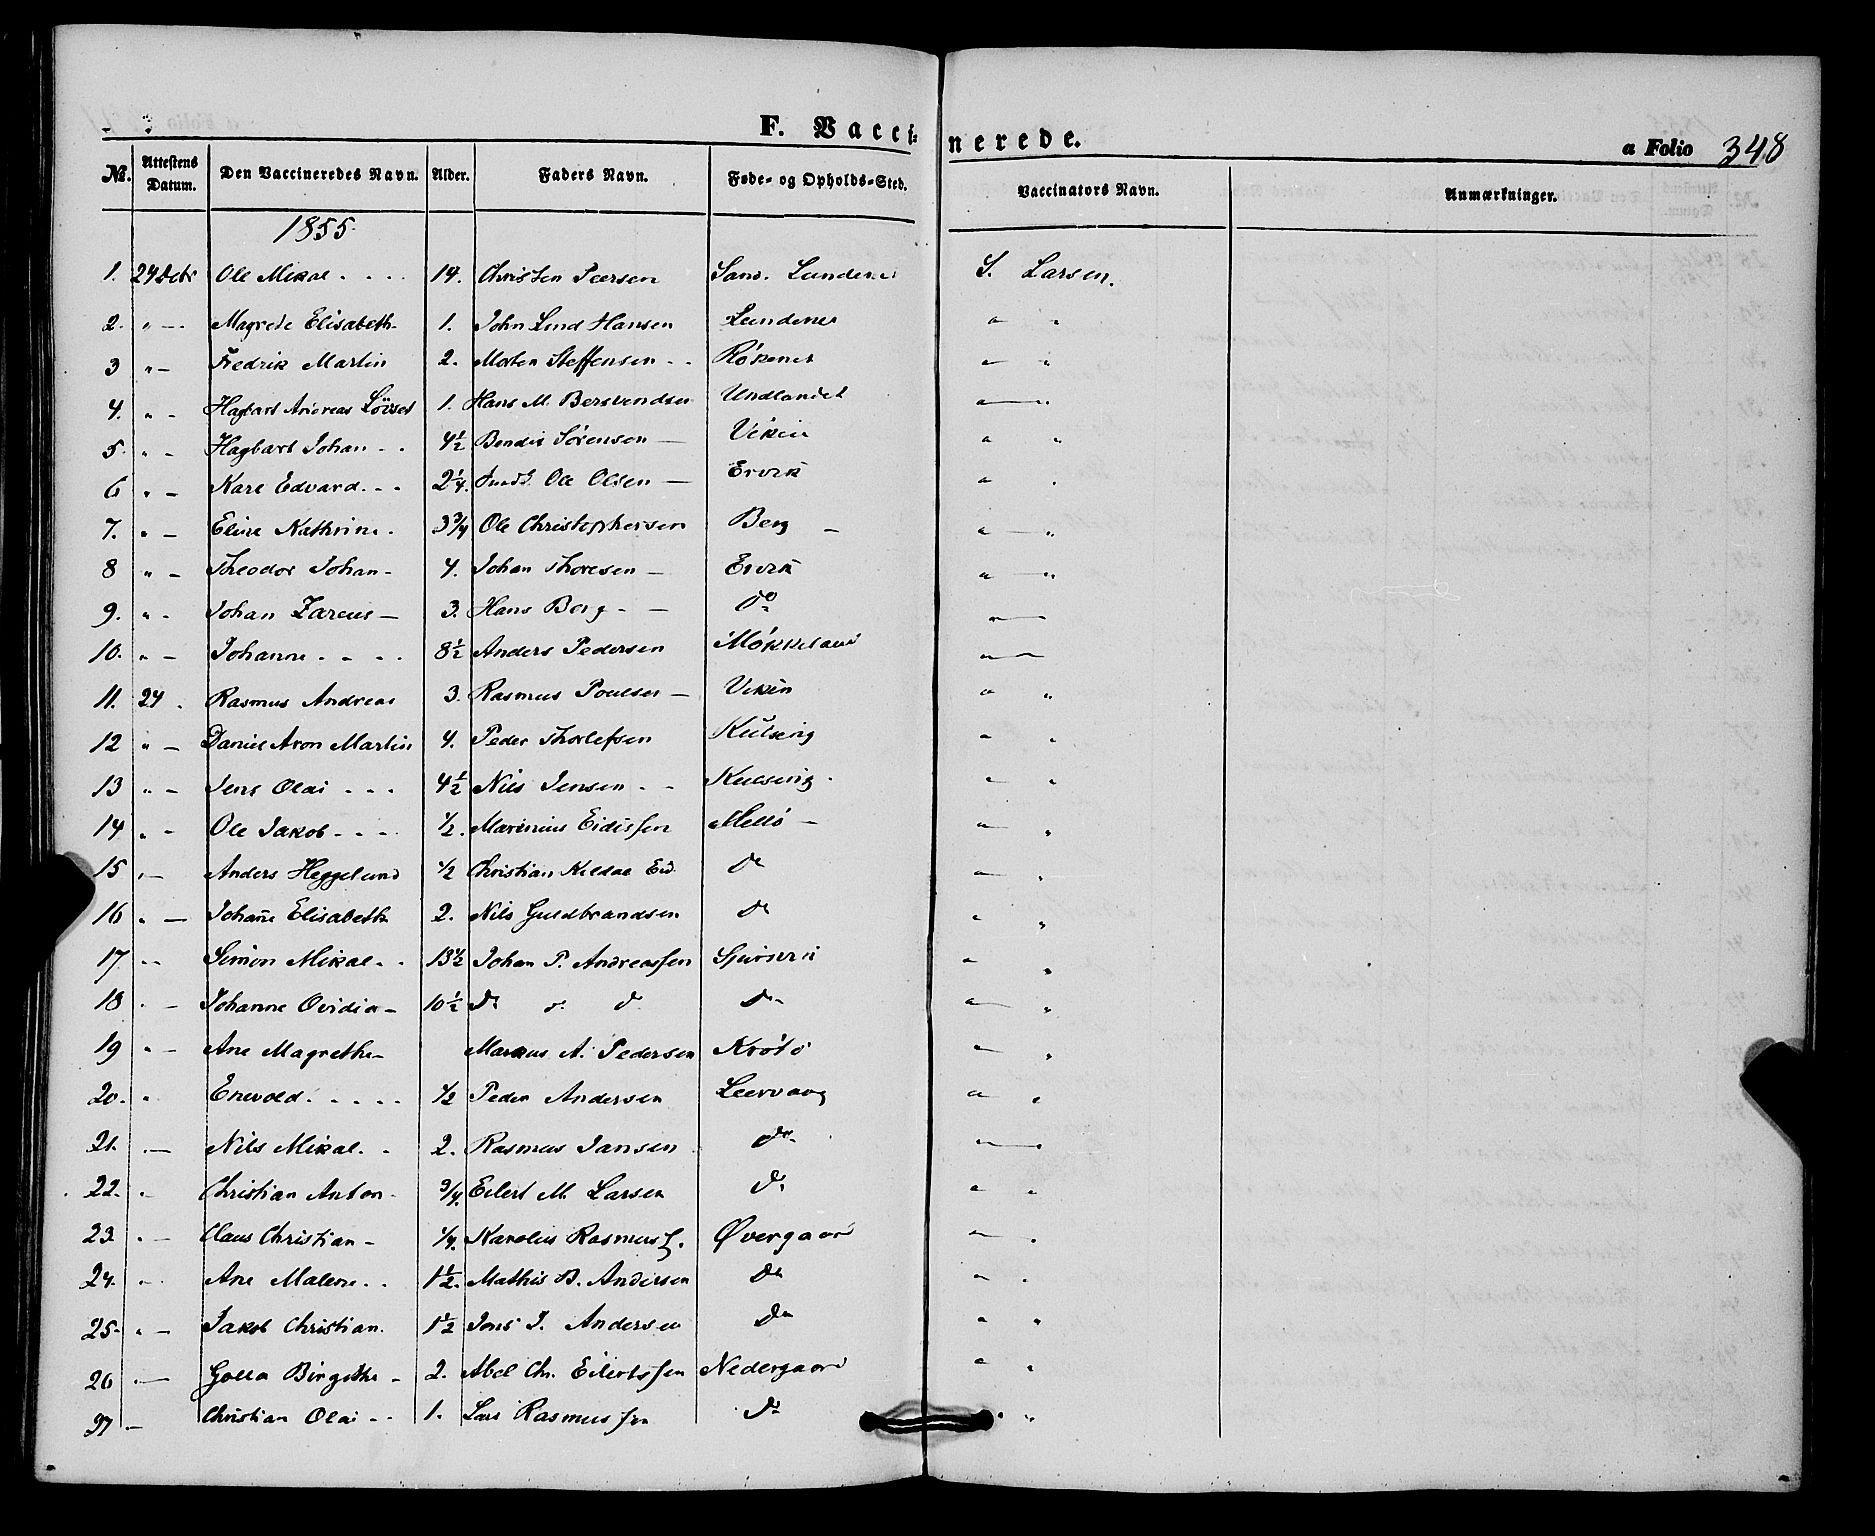 F. Vaccinerede.
a Folio 348
No. Attestens Datum. Den Vaccineredes Navn. Alder. Faders Navn. Føde- og Opholds-Sted. Vaccinators Navn. Anmærkninger.
1855
1. 24 Octr Ole Mikal - - - - 14. Christen Peersen Sand. Lundenes S. Larsen.
2. " - - Magrede Elisabeth - 1. John Lind Hansen Lundenes " "
3 " - Fredrik Martin 2. Morten Steffensen - - Røkenes " "
4. " - Hagbart Andreas 1. Hans M. Bersvendsen Undlandet " "
5. " - Hagbart Johan - - 4½ Sørensen - Vikin " "
6 " - Karl Edvard - - - 2¼. Ole Olsen - Ervik " "
7. " - Eline Kathrine - 3¾ Ole Christophersen Berg - " "
8 " - Theodor Johan - 4. Johan Thoresen - Ervik " "
9. " - Johan Zareus - 3. Hans Berg - - do "
10. " - Johanne - - - - 8½ Anders Pedersen Møkkeland "
11. 24 . Rasmus Andreas 3. Rasmus Poulsen - Vikin " "
12 " - Daniel Aron Martin 4. Peder Thorlefsen Kulseng " "
13 " - Jens Olai - - - 4½ Nils Jensen - - Kulseng - " "
14 " - Ole Jakob - - - - ½. Marinius Eidissen Mellø - " "
15 " - Anders Heggelund ½ Christian Kildal Eid. do " "
16 " - Johañe Elisabeth 2. Nils Guldbrandsen do " "
17 " - Simon Mikal - - 13½ Johan P. Andreassen " "
18 " - Johanne Ovidia - 10½ do do do do " "
19 " - Ane Magrethe - Markus A. Pedersen Krøtø " "
20. " Enevold - - - - - ½ Peder Andersen Leervaag " "
21. " - Nils Mikal - - 2. Rasmus Jansen do " "
22. " Christian Anton - ¾. Eilert M. Larsen do " "
23 " - Claus Christian - ¼. Karolius Rasmuss. Øvergaard " "
24. " - Ane Malene - - 1½. Mathis B. Andersen do " "
25. " - Jakob Christian. 1½ Jons J. Andersen do " "
26 " - Golla Birgithe - 2. Abel Chr. Eilertssen Nedergaard " "
27 - Christian Olai - - 1. Lars Rasmussen do " "